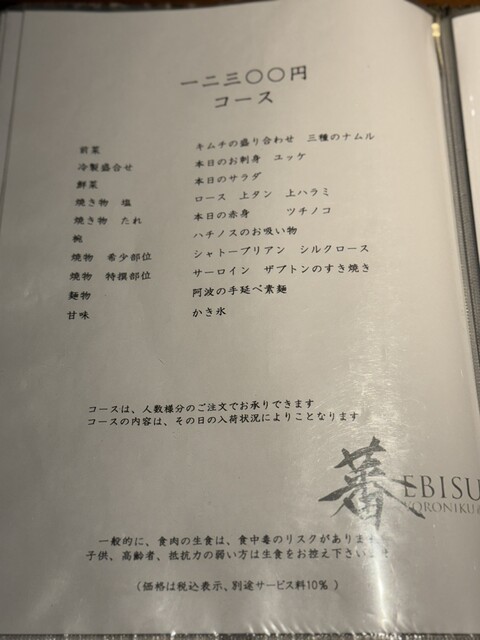 一二三〇〇円
コース
前菜 キムチの盛り合わせ 三種のナムル
冷製盛合せ 本日のお刺身 ユッケ
鮮菜 本日のサラダ
焼き物 塩 ロース 上タン 上ハラミ
焼き物 たれ 本日の赤身 ツチノコ
椀 ハチノスのお吸い物
焼物 希少部位 シャトーブリアン シルクロース
焼物 特撰部位 サーロイン ザブトンのすき焼き
麺物 阿波の手延べ素麺
甘味 かき氷
コースは、人数様分のご注文でお承りできます
コースの内容は、その日の入荷状況によりことなります
蕃 EBISU
YORONIKU
一般的に、食肉の生食は、食中毒のリスクがあります
子供、高齢者、抵抗力の弱い方は生食をお控え下さいませ
(価格は税込表示、別途サービス料10%)